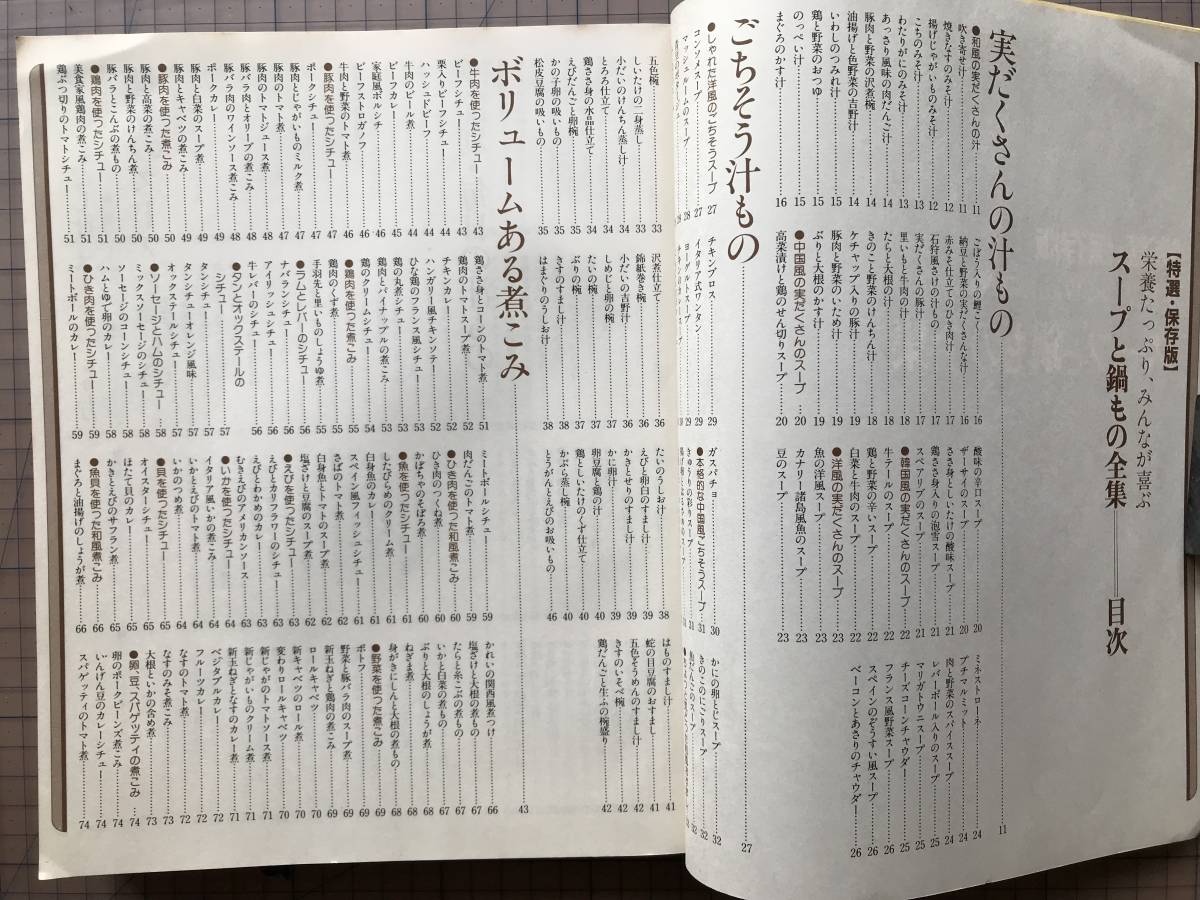 【特選・保存版】
栄養たっぷり、みんなが喜ぶ
スープと鍋もの全集――目次
実だくさんの汁もの……11
●和風の実だくさんの汁……11
吹き寄せ汁……11
焼きなすのみそ汁……12
揚げじゃがいものみそ汁……12
こちのみそ汁……13
わたりがにのみそ汁……13
あっさり風味の肉だんご汁……14
豚肉と野菜の沢煮椀……14
油揚げと色野菜の吉野汁……14
いわしのつみれ汁……15
鶏と野菜のおつゆ……15
のっぺい汁……15
まぐろのかす汁……16
ごぼう入りの鯉こく……16
納豆と野菜の実だくさんな汁……16
赤みそ仕立てのひき肉汁……17
石狩風さけの汁もの……17
実だくさんの豚汁……17
里いもと牛肉の汁……18
たらと大根の汁……18
きのこと野菜のけんちん汁……18
ケチャップ入りの豚汁……18
豚肉と野菜のいため汁……19
ぶりと大根のかす汁……19
●中国風の実だくさんのスープ……20
高菜漬けと鶏のせん切りスープ……20
酸味の辛口スープ……20
ザーサイのスープ……20
ささ身としいたけの酸味スープ……21
鶏ささ身入りの泡雪スープ……21
スペアリブのスープ……21
●韓国風の実だくさんのスープ……22
牛テールのスープ……22
鶏と野菜の辛いスープ……22
白菜と牛肉のスープ……22
●洋風の実だくさんのスープ……23
魚の洋風スープ……23
カナリー諸島風魚のスープ……23
豆のスープ……23
ミネストローネ……24
プチマルミット……24
肉と野菜のスパイススープ……24
レバーボール入りのスープ……25
マリガトウニスープ……25
チーズコーンチャウダー……25
フランス風野菜スープ……26
スペインのぞうすい風スープ……26
ベーコンとあさりのチャウダー……26
ごちそう汁もの……27
●しゃれた洋風のごちそうスープ……27
コンソメスープ……27
マッシュルームのスープ……28
チキンブロス……29
イタリア式ワンタン……29
ヨーグルトスープ……29
ガスパチョ……30
●本格的な中国風ごちそうスープ……31
きゅうりの彩りスープ……31
かにの卵とじスープ……32
きのこのにごりスープ……32
五色椀……33
しいたけの二身蒸し……33
小だいのけんちん蒸し汁……34
とろろ仕立て……34
鶏ささ身の水晶仕立て……34
えびだんごと卵椀……35
かの子卵の吸いもの……35
松皮豆腐の吸いもの……35
沢煮仕立て……36
錦紙巻き椀……36
小だいの吉野汁……36
しめじと卵の椀……37
たいの椀……37
ぶりの椀……37
きすのすまし汁……38
はまぐりのうしお汁……38
たいのうしお汁……38
えびと卵白のすまし汁……39
かきとせりのすまし汁……39
かに卵汁……39
卵豆腐と鶏の汁……40
鶏としいたけのくず仕立て……40
かぶら蒸し椀……40
とうがんとえびのお吸いもの……46
はものすまし汁……41
蛇の目豆腐のおすまし……41
五色そうめんのすまし汁……42
きすのいそべ椀……42
鶏だんごと生ふの椀盛り……42
ボリュームある煮こみ……43
●牛肉を使ったシチュー……43
ビーフシチュー……43
栗入りビーフシチュー……43
ハッシュドビーフ……44
牛肉のビール煮……44
ビーフカレー……45
家庭風ボルシチ……45
ビーフストロガノフ……46
牛肉と野菜のトマト煮……46
●豚肉を使ったシチュー……47
ポークシチュー……47
豚肉とじゃがいものミルク煮……47
豚肉のトマト煮……47
豚肉のトマトジュース煮……48
豚バラ肉とオリーブの煮こみ……48
豚バラ肉のワインソース煮こみ……48
ポークカレー……49
豚肉と白菜のスープ煮……49
豚肉とキャベツの煮こみ……49
●豚肉を使った煮こみ……50
豚肉と高菜の煮こみ……50
豚肉と野菜のけんちん煮……50
豚バラとこんぶの煮もの……50
●鶏肉を使ったシチュー……51
美食家風鶏肉の煮こみ……51
鶏ぶつ切りのトマトシチュー……51
鶏ささ身とコーンのトマト煮……51
鶏肉のトマトスープ煮……52
チキンカレー……52
ハンガリー風チキンソテー……52
ひな鶏のフランス風シチュー……53
鶏の丸煮シチュー……53
鶏肉とパイナップルの煮こみ……53
鶏のクリームシチュー……54
●鶏肉を使った煮こみ……55
鶏肉のくず煮……55
手羽先と里いものしょうゆ煮……55
●ラムとレバーのシチュー……56
ナバランシチュー……56
アイリッシュシチュー……56
牛レバーのシチュー……56
●タンとオックステールのシチュー……57
タンシチュー……57
タンシチューオレンジ風味……57
オックステールシチュー……57
●ソーセージとハムのシチュー……58
ミックスソーセージのシチュー……58
ソーセージのコーンシチュー……58
ハムとゆで卵のカレー……58
●ひき肉を使ったシチュー……59
ミートボールのカレー……59
ミートボールシチュー……59
肉だんごのトマト煮……59
●ひき肉を使った和風煮こみ……60
ひき肉のつくね煮……60
かぼちゃのそぼろ煮……60
●魚を使ったシチュー……61
したびらめのクリーム煮……61
白身魚のカレー……61
スペイン風フィッシュシチュー……61
さばのトマト煮……62
白身魚とトマトのスープ煮……62
塩ざけと豆腐のスープ煮……62
●えびを使ったシチュー……63
えびとカリフラワーのシチュー……63
えびとわかめのカレー……63
むきえびのアメリカンソース……63
●いかを使ったシチュー……64
イタリア風いかの煮こみ……64
いかとえびのトマト煮……64
いかのつめ煮……64
●貝を使ったシチュー……65
オイスターシチュー……65
ほたて貝のカレー……65
かきとえびのサフラン煮……65
●魚貝を使った和風煮こみ……66
まぐろと油揚げのしょうが煮……66
かれいの関西風煮つけ……66
塩ざけと大根の煮もの……67
たらと糸こぶの煮もの……67
いかと白菜の煮もの……67
ぶりと大根のしょうが煮……68
身がきにしんと大根の煮もの……68
ねぎま煮……68
●野菜を使った煮こみ……69
ポトフ……69
野菜と豚バラ肉のスープ煮……69
新玉ねぎと鶏肉の煮こみ……69
ロールキャベツ……70
新キャベツのロール煮……70
変わりロールキャベツ……70
新じゃがのトマトソース煮……71
新じゃがいものクリーム煮……71
新玉ねぎとなすのカレー煮……71
ベジタブルカレー……72
フルーツカレー……72
なすのトマト煮……72
なすのみそ煮こみ……73
大根といかの含め煮……73
●卵、豆、スパゲッティの煮こみ……74
卵のポークビーンズ煮こみ……74
いんげん豆のカレーシチュー……74
スパゲッティのトマト煮……74